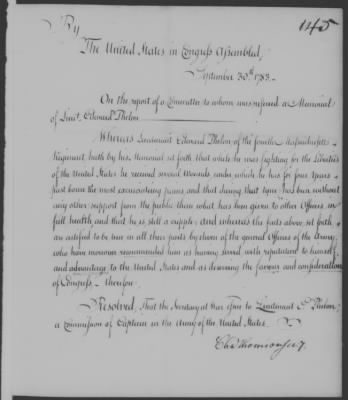 145
By
The United States in Congress Assembled,
September 30th 1783.
On the report of a Committee to whom was referred a Memorial
of Lieut. Edward Phelon
Whereas Lieutenant Edward Phelon of the fourth Massachusetts
Regiment hath by his Memorial set forth that while he was fighting for the Liberties
of the United States he received several Wounds under which he has for four Years
past borne the most excruciating pains and that during that time has been without
any other support from the public than what has been given to other Officers in
full health and that he is still a cripple: and whereas the facts above set forth
are certified to be true in all their parts by three of the general Officers of the Army,
who have moreover recommended him as having served with reputation to himself
and advantage to the United States and as deserving the favour and consideration
of Congress. therefore
Resolved, That the Secretary at War issue to Lieutenant E. Phelon,
a Commission of Captain in the Army of the United States.
Cha Thomson Secy.